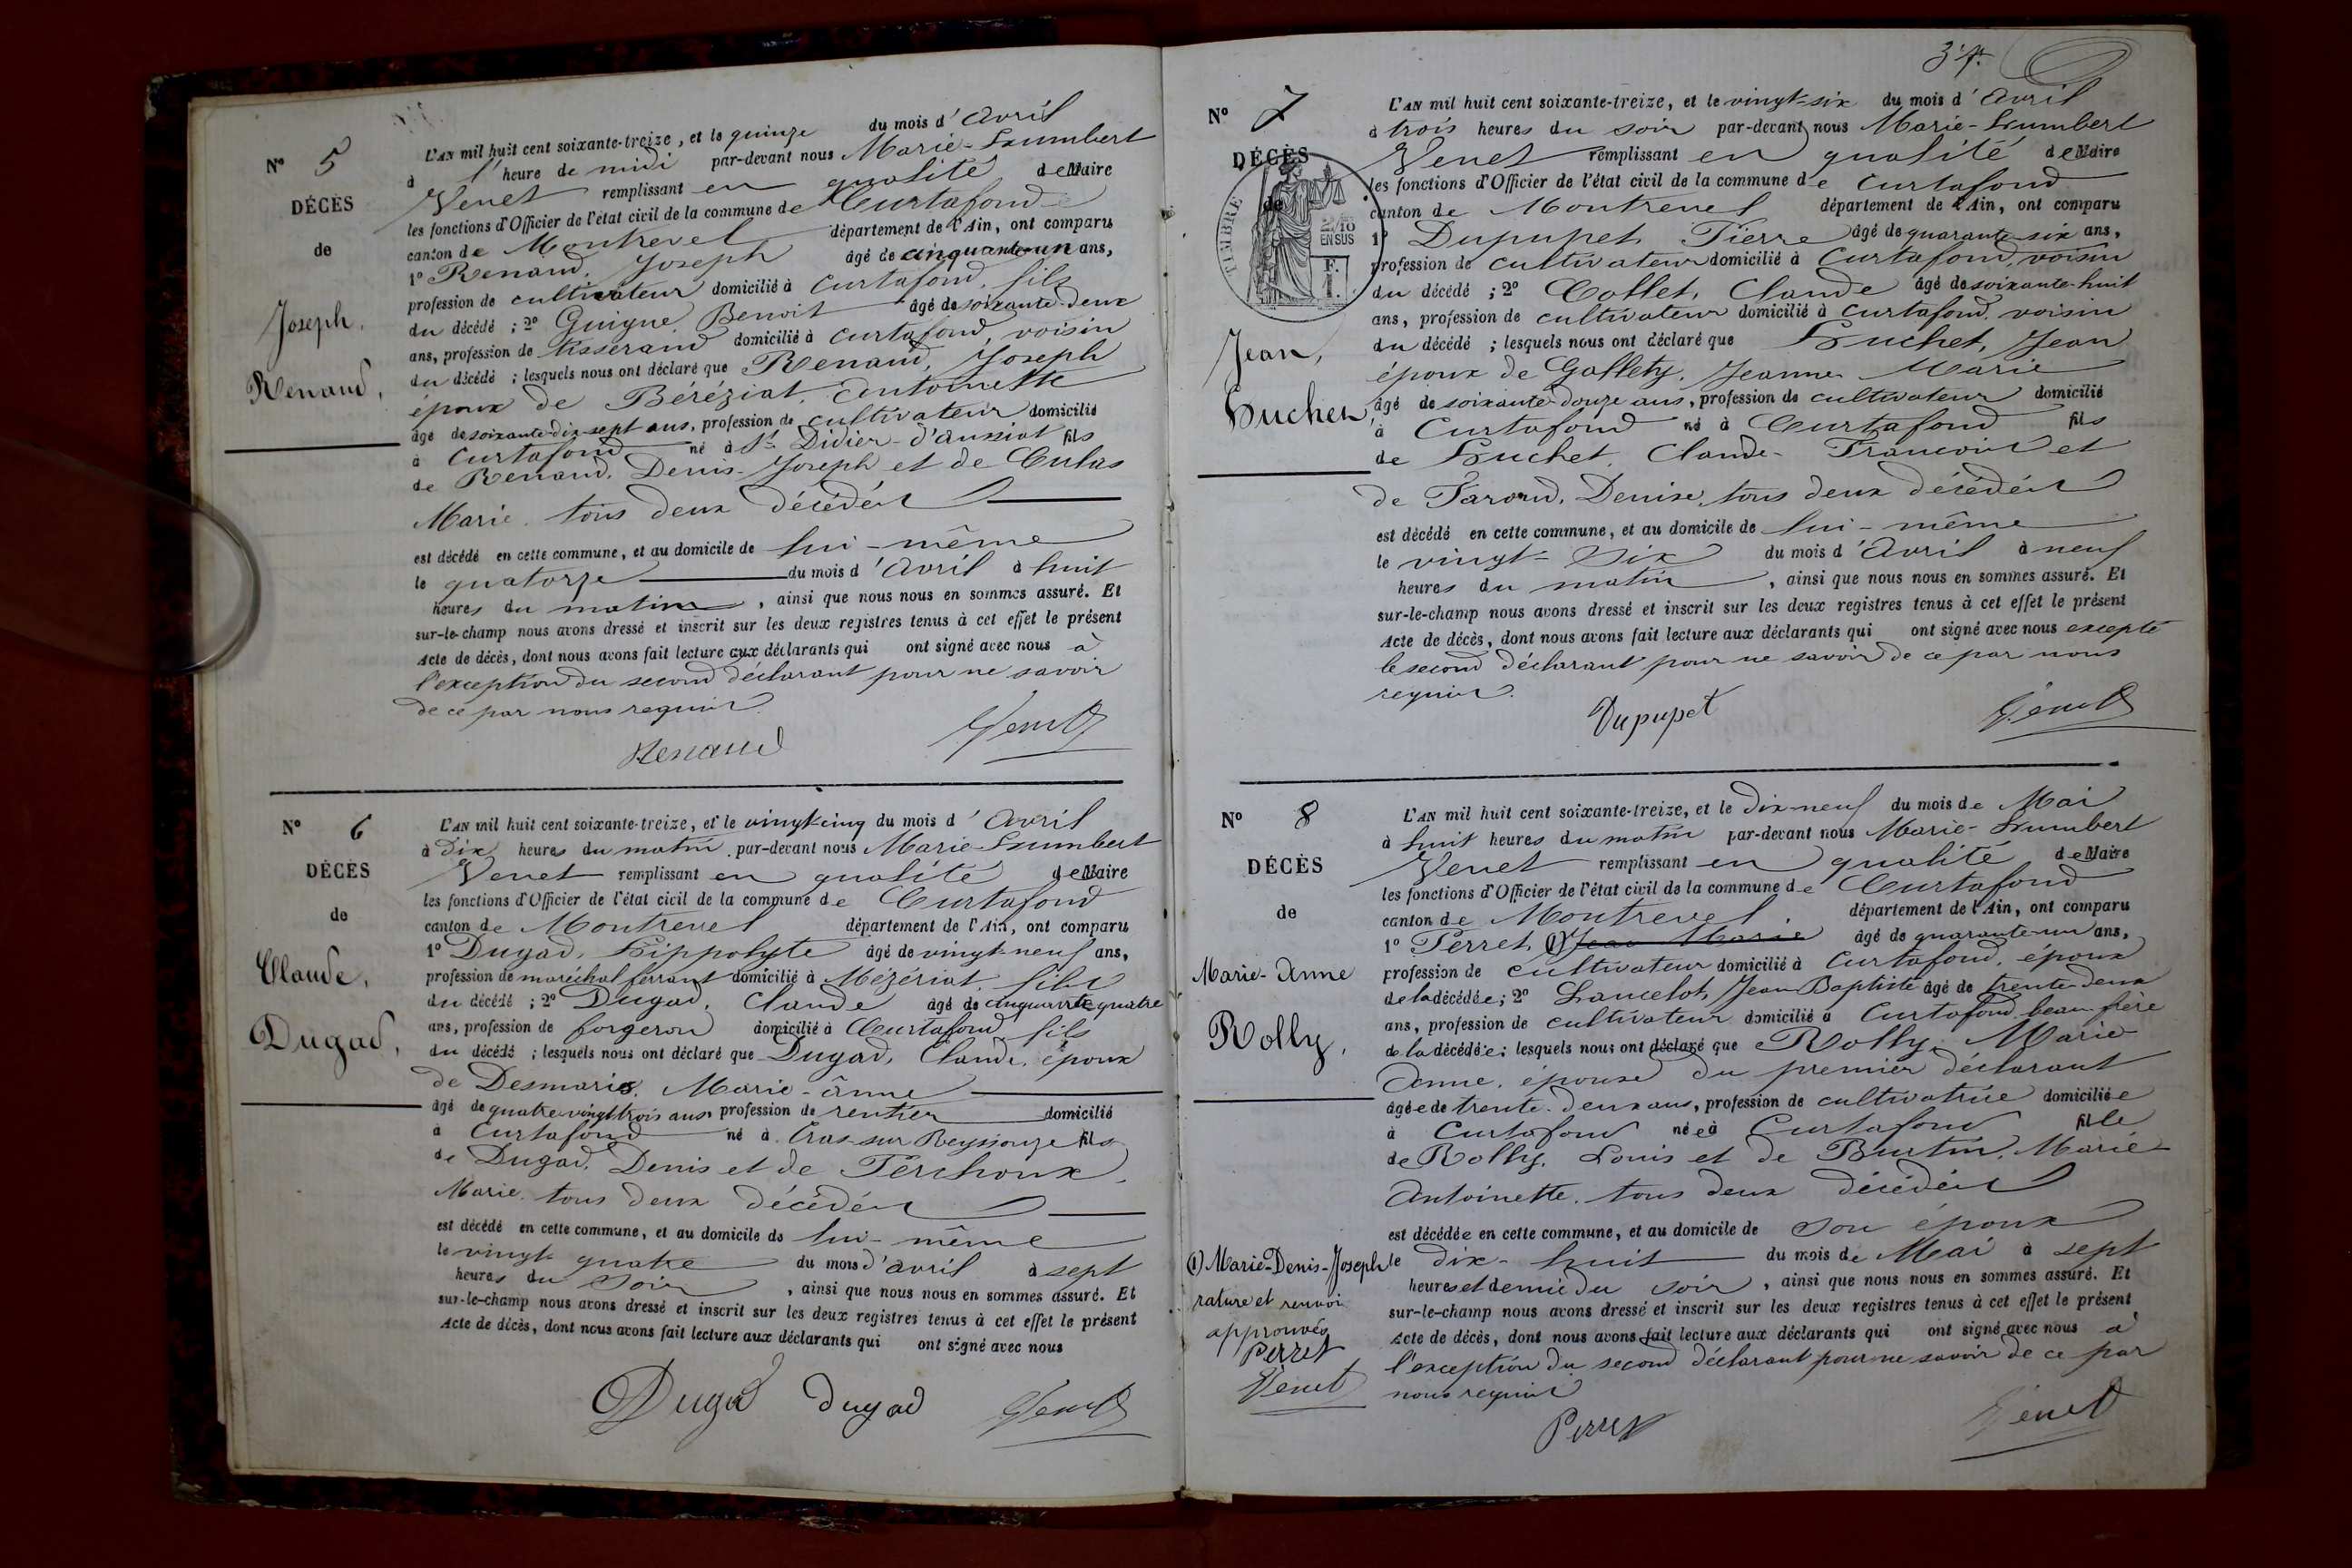 N° 5
DÉCÈS
de
Joseph,
Renaud,
L'AN mil huit cent soixante-treize, et le quinze du mois d'Avril
à l'heure de midi par-devant nous Marie-Humbert
Venet remplissant en qualité de Maire
les fonctions d'Officier de l'état civil de la commune de Curtafond
canton de Montrevel département de l'Ain, ont comparu
1° Renaud, Joseph âgé de cinquante-un ans,
profession de cultivateur domicilié à Curtafond, fils
du décédé ; 2° Guigue, Benoit âgé de soixante-deux
ans, profession de tisserand domicilié à Curtafond, voisin
du décédé ; lesquels nous ont déclaré que Renaud, Joseph
époux de Béréziat, Antoinette
âgé de soixante-dix-sept ans, profession de cultivateur domicilié
à Curtafond né à St Didier-d'Aussiat fils
de Renaud, Denis-Joseph et de Culas
Marie, tous deux décédés
est décédé en cette commune, et au domicile de lui-même
le quatorze du mois d'Avril à huit
heures du matin, ainsi que nous nous en sommes assuré. Et
sur-le-champ nous avons dressé et inscrit sur les deux registres tenus à cet effet le présent
Acte de décès, dont nous avons fait lecture aux déclarants qui ont signé avec nous à
l'exception du second déclarant pour ne savoir
de ce par nous requis
Renaud Venet
N° 6
DÉCÈS
de
Claude,
Dugad,
L'AN mil huit cent soixante-treize, et le vingt-cinq du mois d'Avril
à dix heures du matin par-devant nous Marie-Humbert
Venet remplissant en qualité de Maire
les fonctions d'Officier de l'état civil de la commune de Curtafond
canton de Montrevel département de l'Ain, ont comparu
1° Dugad, Hippolyte âgé de vingt-neuf ans,
profession de maréchal ferrant domicilié à Mézériat, fils
du décédé ; 2° Dugad, Claude âgé de cinquante quatre
ans, profession de forgeron domicilié à Curtafond fils
du décédé ; lesquels nous ont déclaré que Dugad, Claude, époux
de Desmaris, Marie-Anne
âgé de quatre-vingt-trois ans profession de rentier domicilié
à Curtafond né à Cras-sur Reyssouze fils
de Dugad, Denis et de Perchoux,
Marie, tous deux décédés
est décédé en cette commune, et au domicile de lui-même
le vingt quatre du mois d'avril à sept
heures du soir, ainsi que nous nous en sommes assuré. Et
sur-le-champ nous avons dressé et inscrit sur les deux registres tenus à cet effet le présent
Acte de décès, dont nous avons fait lecture aux déclarants qui ont signé avec nous
Dugad Dugad Venet
N° 7
DÉCÈS
de
TIMBRE
2/10
EN SUS
F.
Jean,
Huchet,
L'AN mil huit cent soixante-treize, et le vingt-six du mois d'Avril
à trois heures du soir par-devant nous Marie-Humbert
Venet remplissant en qualité de Maire
les fonctions d'Officier de l'état civil de la commune de Curtafond
canton de Montrevel département de l'Ain, ont comparu
1° Dupupet, Pierre âgé de quarante-six ans,
profession de cultivateur domicilié à Curtafond, voisin
du décédé ; 2° Collet, Claude âgé de soixante-huit
ans, profession de cultivateur domicilié à Curtafond, voisin
du décédé ; lesquels nous ont déclaré que Huchet, Jean
époux de Gallety, Jeanne Marie
âgé de soixante-douze ans, profession de cultivateur domicilié
à Curtafond né à Curtafond fils
de Huchet, Claude-François et
de Parond, Denise, tous deux décédés
est décédé en cette commune, et au domicile de lui-même
le vingt-six du mois d'Avril à neuf
heures du matin, ainsi que nous nous en sommes assuré. Et
sur-le-champ nous avons dressé et inscrit sur les deux registres tenus à cet effet le présent
Acte de décès, dont nous avons fait lecture aux déclarants qui ont signé avec nous excepté
le second déclarant pour ne savoir de ce par nous
requis.
Dupupet Venet
N° 8
DÉCÈS
de
Marie-Anne
Rolly,
L'AN mil huit cent soixante-treize, et le dix-neuf du mois de Mai
à huit heures du matin par-devant nous Marie-Humbert
Venet remplissant en qualité de Maire
les fonctions d'Officier de l'état civil de la commune de Curtafond
canton de Montrevel département de l'Ain, ont comparu
1° Perret, (1) Jean Marie âgé de quarante-un ans,
profession de cultivateur domicilié à Curtafond, époux
de la décédée ; 2° Lancelot, Jean Baptiste âgé de trente-deux
ans, profession de cultivateur domicilié à Curtafond beau-frère
de la décédée ; lesquels nous ont déclaré que Rolly, Marie
Anne, épouse du premier déclarant
âgée de trente-deux ans, profession de cultivatrice domiciliée
à Curtafond née à Curtafond fille
de Rolly, Louis et de Burtin, Marie
Antoinette, tous deux décédés
est décédée en cette commune, et au domicile de son époux
le dix-huit du mois de Mai à sept
heures et demie du soir, ainsi que nous nous en sommes assuré. Et
sur-le-champ nous avons dressé et inscrit sur les deux registres tenus à cet effet le présent
Acte de décès, dont nous avons fait lecture aux déclarants qui ont signé avec nous à
l'exception du second déclarant pour ne savoir de ce par
nous requis
Perret Venet
(1) Marie-Denis-Joseph
rature et renvoi
approuvés
Perret
Venet